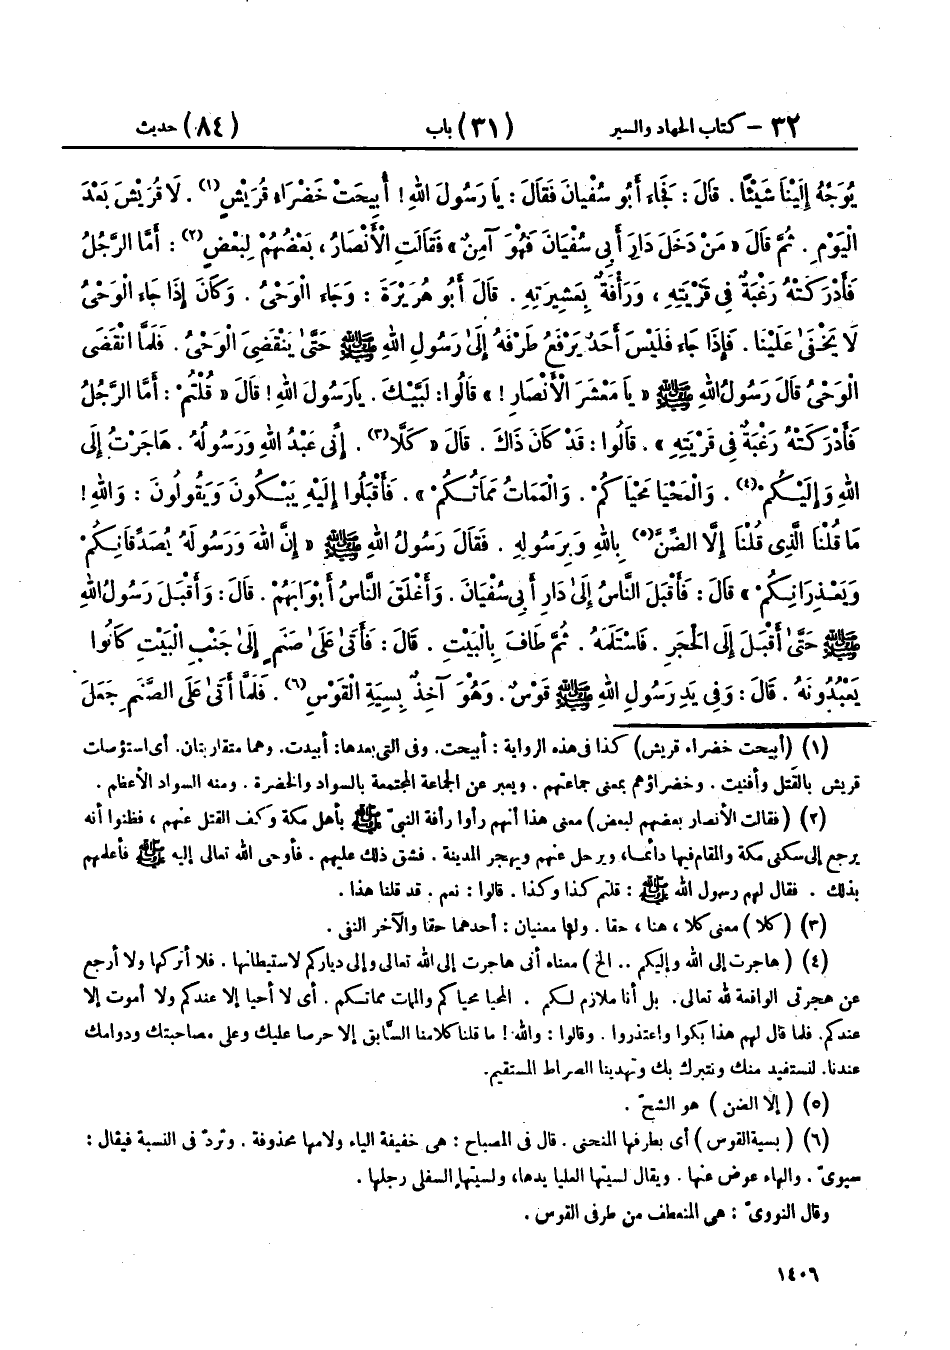 ٣٢ – كتاب الجهاد والسير (٣١) باب (٨٤) حديث
يُوَجِّهُ إِلَيْنَا شَيْئًا . قَالَ : فَجَاءَ أَبُو سُفْيَانَ فَقَالَ : يَا رَسُولَ اللهِ ! أُبِيحَتْ خَضْرَاءُ قُرَيْشٍ(١) . لَا قُرَيْشَ بَعْدَ
الْيَوْمِ . ثُمَّ قَالَ « مَنْ دَخَلَ دَارَ أَبِي سُفْيَانَ فَهُوَ آمِنٌ » فَقَالَتِ الْأَنْصَارُ ، بَعْضُهُمْ لِبَعْضٍ(٢) : أَمَّا الرَّجُلُ
فَأَدْرَكَتْهُ رَغْبَةٌ فِي قَرْيَتِهِ ، وَرَأْفَةٌ بِعَشِيرَتِهِ . قَالَ أَبُو هُرَيْرَةَ : وَجَاءَ الْوَحْيُ . وَكَانَ إِذَا جَاءَ الْوَحْيُ
لَا يَخْفَىٰ عَلَيْنَا . فَإِذَا جَاءَ فَلَيْسَ أَحَدٌ يَرْفَعُ طَرْفَهُ إِلَىٰ رَسُولِ اللهِ ﷺ حَتَّىٰ يَنْقَضِيَ الْوَحْيُ . فَلَمَّا انْقَضَى
الْوَحْيُ قَالَ رَسُولُ اللهِ ﷺ « يَا مَعْشَرَ الْأَنْصَارِ ! » قَالُوا: لَبَّيْكَ . يَا رَسُولَ اللهِ ! قَالَ « قُلْتُمْ : أَمَّا الرَّجُلُ
فَأَدْرَكَتْهُ رَغْبَةٌ فِي قَرْيَتِهِ » . قَالُوا : قَدْ كَانَ ذَاكَ . قَالَ « كَلَّا(٣) . إِنِّي عَبْدُ اللهِ وَرَسُولُهُ . هَاجَرْتُ إِلَى
اللهِ وَإِلَيْكُمْ(٤) . وَالْمَحْيَا مَحْيَاكُمْ . وَالْمَمَاتُ مَمَاتُكُمْ » . فَأَقْبَلُوا إِلَيْهِ يَبْكُونَ وَيَقُولُونَ : وَاللهِ !
مَا قُلْنَا الَّذِي قُلْنَا إِلَّا الضِّنَّ(٥) بِاللهِ وَبِرَسُولِهِ . فَقَالَ رَسُولُ اللهِ ﷺ « إِنَّ اللهَ وَرَسُولَهُ يُصَدِّقَانِكُمْ
وَيَعْذِرَانِكُمْ » قَالَ : فَأَقْبَلَ النَّاسُ إِلَىٰ دَارِ أَبِي سُفْيَانَ . وَأَغْلَقَ النَّاسُ أَبْوَابَهُمْ . قَالَ : وَأَقْبَلَ رَسُولُ اللهِ
ﷺ حَتَّىٰ أَقْبَلَ إِلَى الْحَجَرِ . فَاسْتَلَمَهُ . ثُمَّ طَافَ بِالْبَيْتِ . قَالَ : فَأَتَىٰ عَلَىٰ صَنَمٍ إِلَىٰ جَنْبِ الْبَيْتِ كَانُوا
يَعْبُدُونَهُ . قَالَ : وَفِي يَدِ رَسُولِ اللهِ ﷺ قَوْسٌ . وَهُوَ آخِذٌ بِسِيَةِ الْقَوْسِ(٦) . فَلَمَّا أَتَىٰ عَلَى الصَّنَمِ جَعَلَ
(١) (أبيحت خضراء قريش) كذا فى هذه الرواية : أبيحت. وفى التى بعدها: أبيدت. وهما متقاربتان. أى استؤصلت
قريش بالقتل وأفنيت . وخضراؤهم بمعنى جماعتهم . ويعبر عن الجماعة المجتمعة بالسواد والخضرة . ومنه السواد الأعظم .
(٢) (فقالت الأنصار بعضهم لبعض) معنى هذا أنهم رأوا رأفة النبىّ ﷺ بأهل مكة وكف القتل عنهم ، فظنوا أنه
يرجع إلى سكنى مكة والمقام فيها دائما، ويرحل عنهم ويهجر المدينة . فشق ذلك عليهم . فأوحى الله تعالى إليه ﷺ فأعلمهم
بذلك . فقال لهم رسول الله ﷺ : قلتم كذا وكذا . قالوا : نعم . قد قلنا هذا .
(٣) (كلا) معنى كلا ، هنا ، حقا . ولها معنيان : أحدهما حقا والآخر النفى .
(٤) (هاجرت إلى الله وإليكم .. الخ) معناه أنى هاجرت إلى الله تعالى وإلى دياركم لاستيطانها . فلا أتركها ولا أرجع
عن هجرتى الواقعة لله تعالى. بل أنا ملازم لكم . المحيا محياكم والممات مماتكم . أى لا أحيا إلا عندكم ولا أموت إلا
عندكم. فلما قال لهم هذا بكوا واعتذروا . وقالوا : والله ! ما قلنا كلامنا السابق إلا حرصا عليك وعلى مصاحبتك ودوامك
عندنا. لنستفيد منك ونتبرك بك وتهدينا الصراط المستقيم.
(٥) (إلا الضن) هو الشحّ .
(٦) (بسية القوس) أى بطرفها المنحنى . قال فى المصباح : هى خفيفة الياء ولامها محذوفة . وتردّ فى النسبة فيقال :
سيوىّ . والهاء عوض عنها . ويقال لسيتها العليا يدها، ولسيتها السفلى رجلها .
وقال النووىّ : هى المنعطف من طرفى القوس .
١٤٠٦